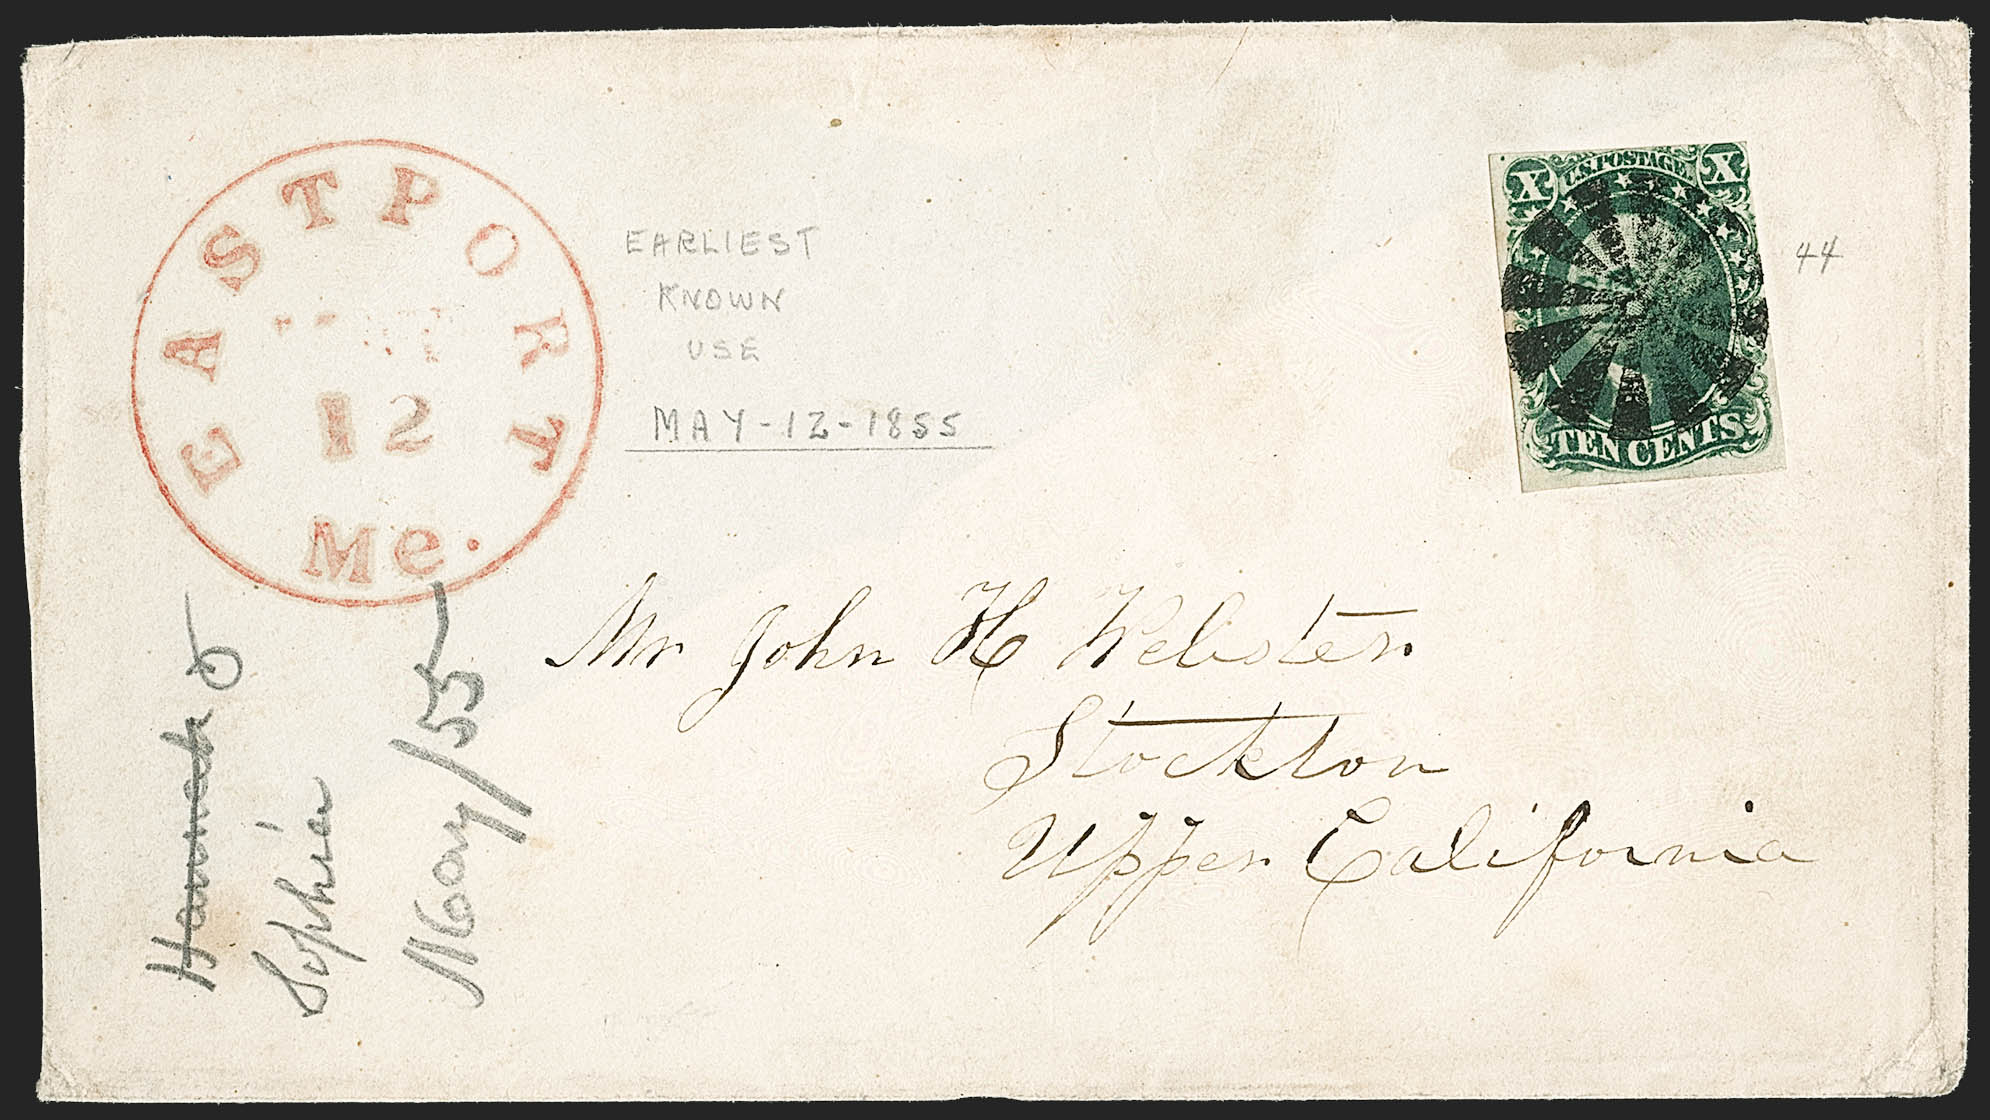 EASTPORT
12
Me.
EARLIEST
KNOWN
USE
MAY-12-1855
X U.S. POSTAGE X
TEN CENTS
44
Mr John H Webster.
Stockton
Upper California
Sophia
May/55